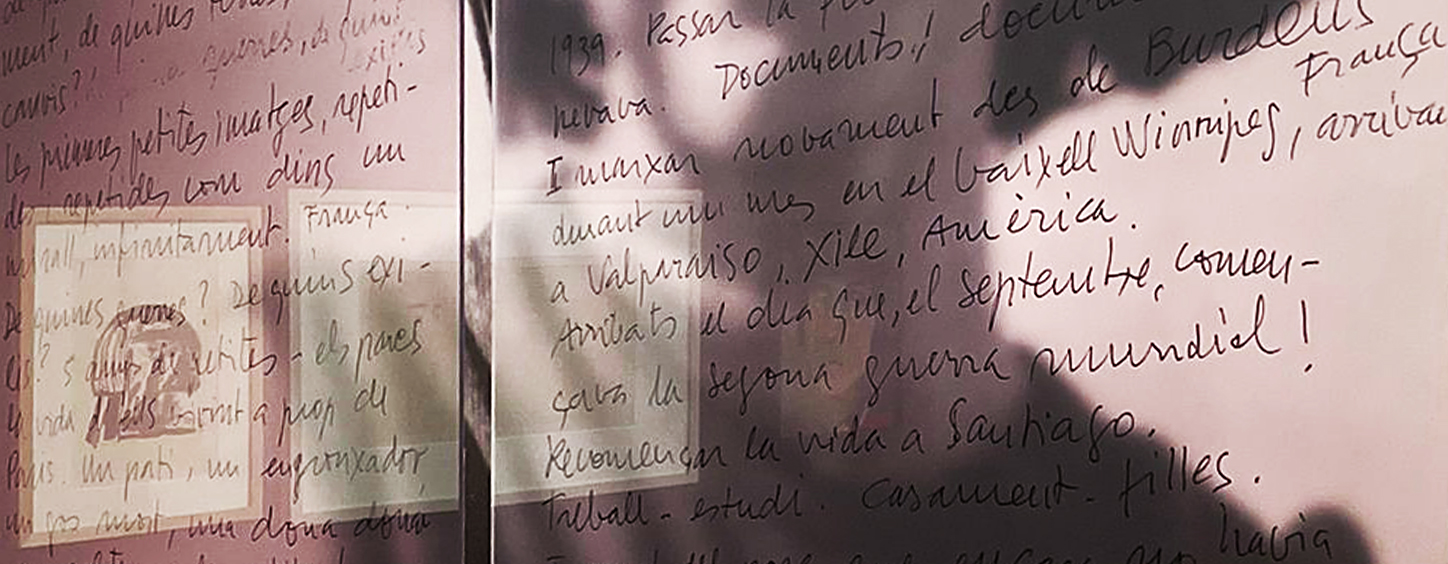 ment, de quines
canvis?
les primeres petites imatges, repeti-
des, repetides com dins un
mirall, infinitament. França.
De quines guerres? De quins exi-
lis? 5 anys de petites - els pares
la vida d'ells vivint a prop de
París. Un pati, un engronxador,
un gos mort, una dona dona
1939. Passar la
nevava. Documents!
I marxar novament des de Burdeus França
durant un mes en el vaixell Winnipeg, arribar
a Valparaiso, Xile, Amèrica.
Arribats el dia que, el septembre, comen-
çava la segona guerra mundial!
Recomençar la vida a Santiago.
Treball - estudi. Casament - filles.
havia